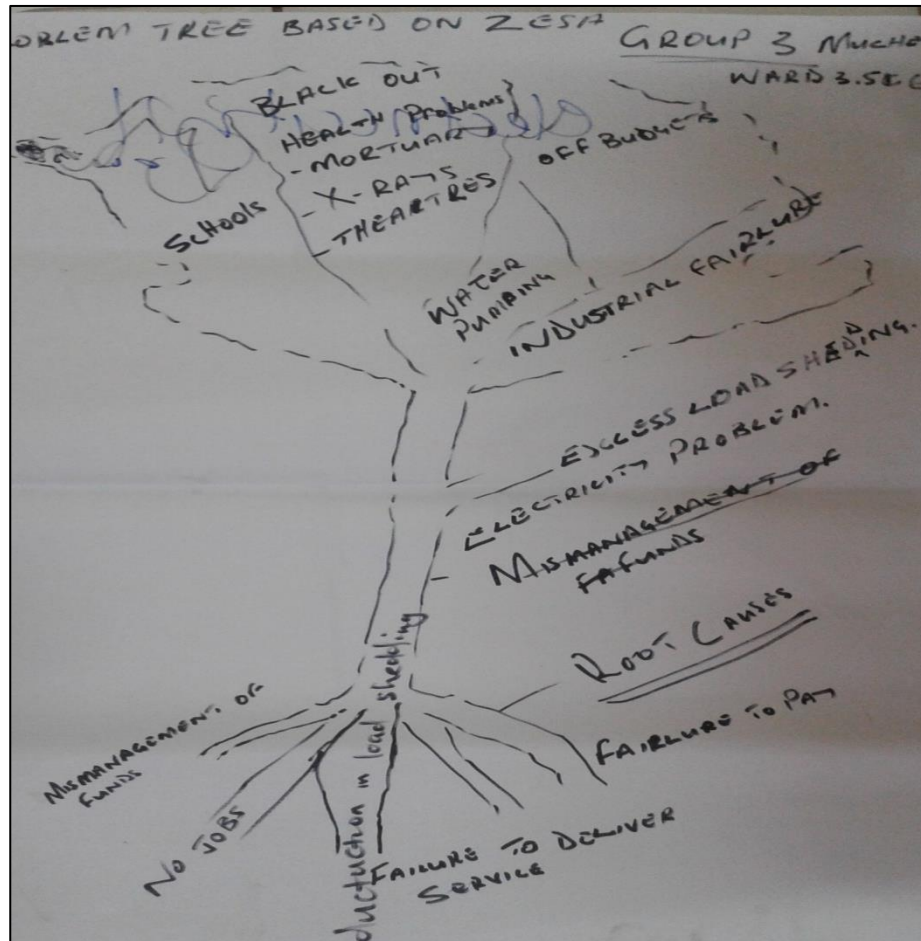 OBLEM TREE BASED ON ZESA
GROUP 3 MUCHE
WARD 3.5&6
BLACK OUT
HEALTH Problems}
- MORTUARY
- X-RAYS
- THEARTRES
OFF BUDGETS
SCHOOLS
WATER
PUMPING
INDUSTRIAL FAIRLURE
EXCESS LOAD SHEDDING.
ELECTRICITY PROBLEM.
MISMANAGEMENT OF
FAFUNDS
ROOT CAUSES
FAIRLURE TO PAY
MISMANAGEMENT OF
FUNDS
NO JOBS
duction in load shedding
FAILURE TO DELIVER
SERVICE